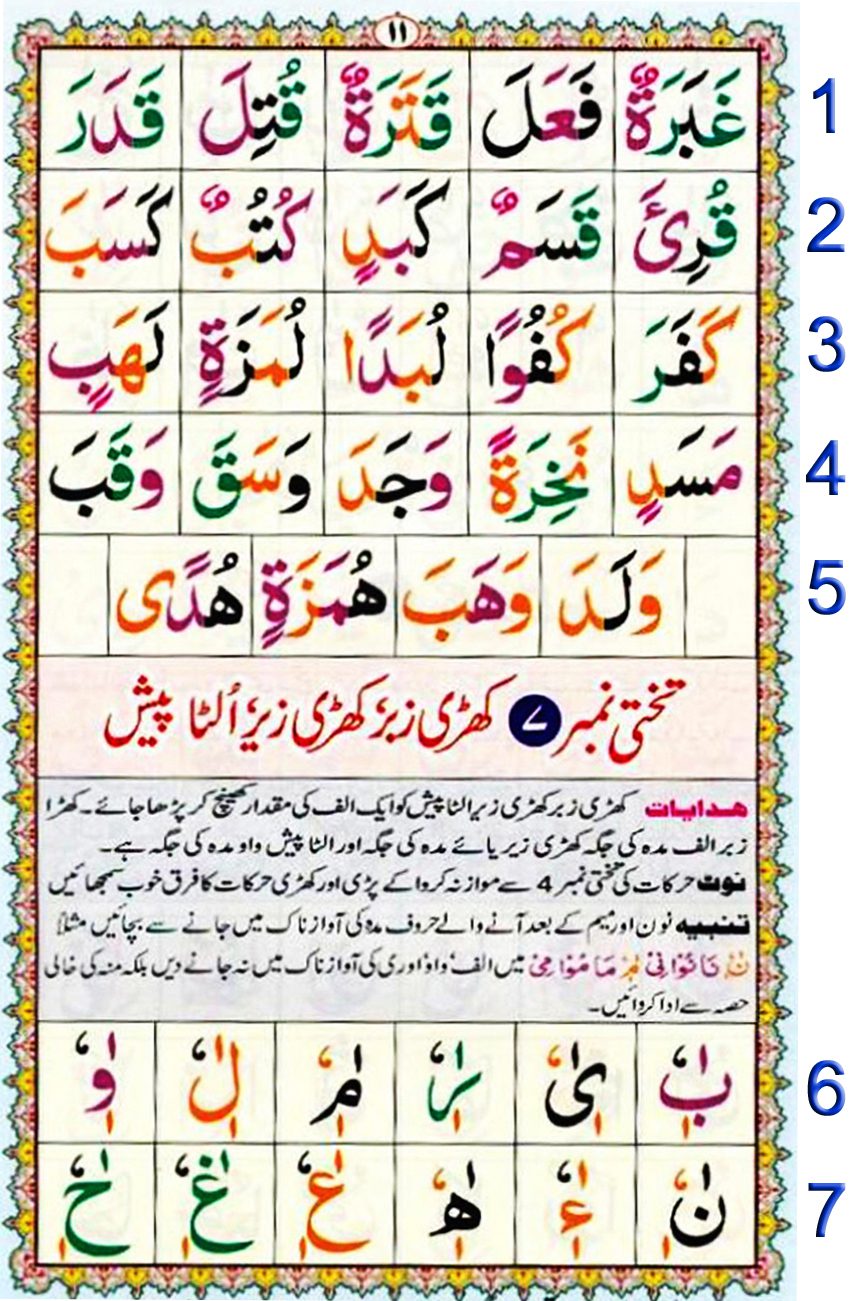 ١١
غَبَرَةٌ فَعَلَ قَتَرَةٌ قُتِلَ قَدَرَ 1
قُرِئَ قَسَمٌ كَبَدٍ كُتُبٌ كَسَبَ 2
كَفَرَ كُفُوًا لُبَدًا لُمَزَةٍ لَهَبٍ 3
مَسَدٍ نَخِرَةً وَجَدَ وَسَقَ وَقَبَ 4
وَلَدَ وَهَبَ هُمَزَةٍ هُدًى 5
تختی نمبر ۷ کھڑی زبر، کھڑی زیر، اُلٹا پیش
ھدایات کھڑی زبر کھڑی زیر الٹا پیش کو ایک الف کی مقدار کھینچ کر پڑھا جائے۔ کھڑا
زبر الف مدہ کی جگہ کھڑی زیر یائے مدہ کی جگہ اور الٹا پیش واو مدہ کی جگہ ہے۔
نوٹ حرکات کی تختی نمبر 4 سے موازنہ کروا کے پڑی اور کھڑی حرکات کا فرق خوب سمجھائیں
تنبیه نون اور میم کے بعد آنے والے حروف مدہ کی آواز ناک میں جانے سے بچائیں مثلاً
نَا نُوْا نِیْ مَا مُوْا مِیْ میں الف، واؤ اور ی کی آواز ناک میں نہ جانے دیں بلکہ منہ کی خالی
حصہ سے ادا کروائیں۔
بٰ بٖ بٗ یٰ یٖ یٗ رٰ رٖ رٗ مٰ مٖ مٗ لٰ لٖ لٗ وٰ وٖ وٗ 6
نٰ نٖ نٗ ءٰ ءٖ ءٗ هٰ هٖ هٗ عٰ عٖ عٗ غٰ غٖ غٗ حٰ حٖ حٗ 7